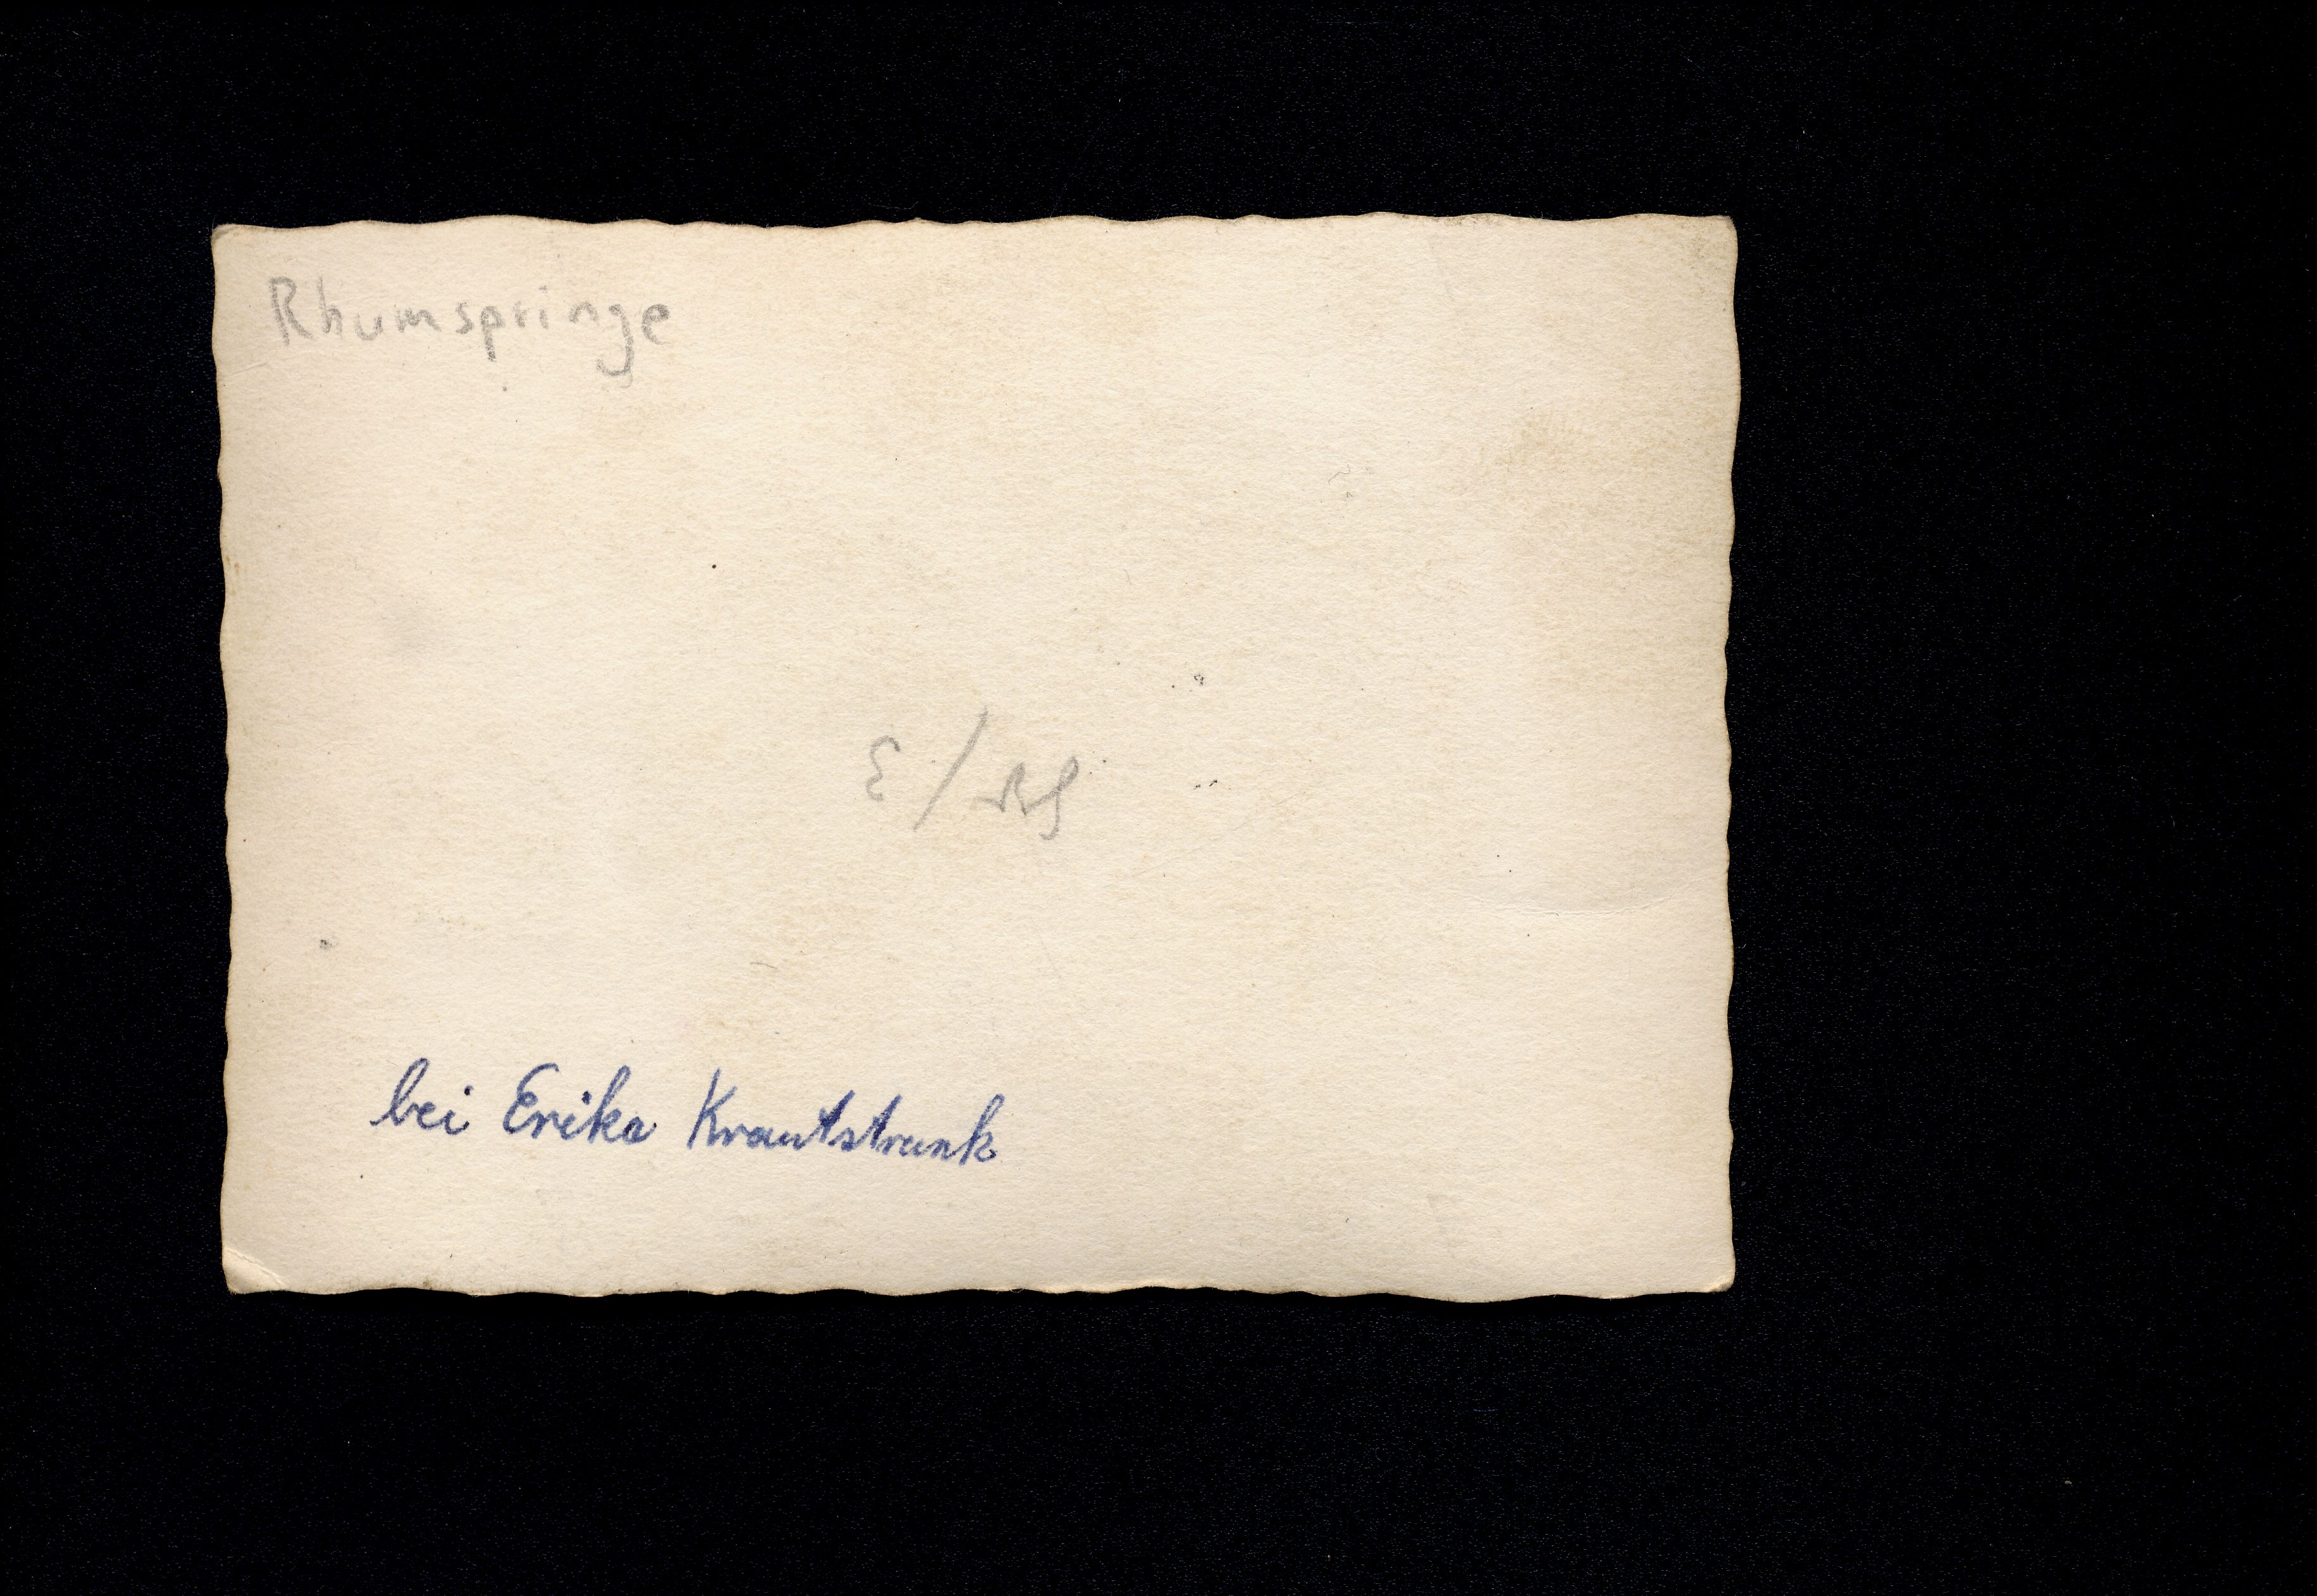 Rhumspringe
bei Erika Krautstrunk